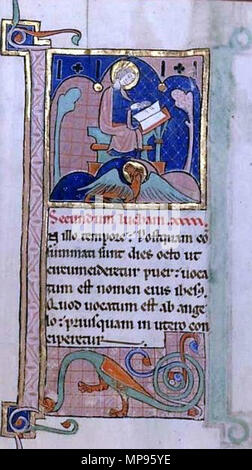 Secundum lucham.
In illo tempore: Postquam co
summati sunt dies octo ut
circumcideretur puer: voca
tum est nomen eius ihesus.
Quod vocatum est ab ange
lo: priusquam in utero con
ciperetur
alamy
Image ID: MP95YE
www.alamy.com